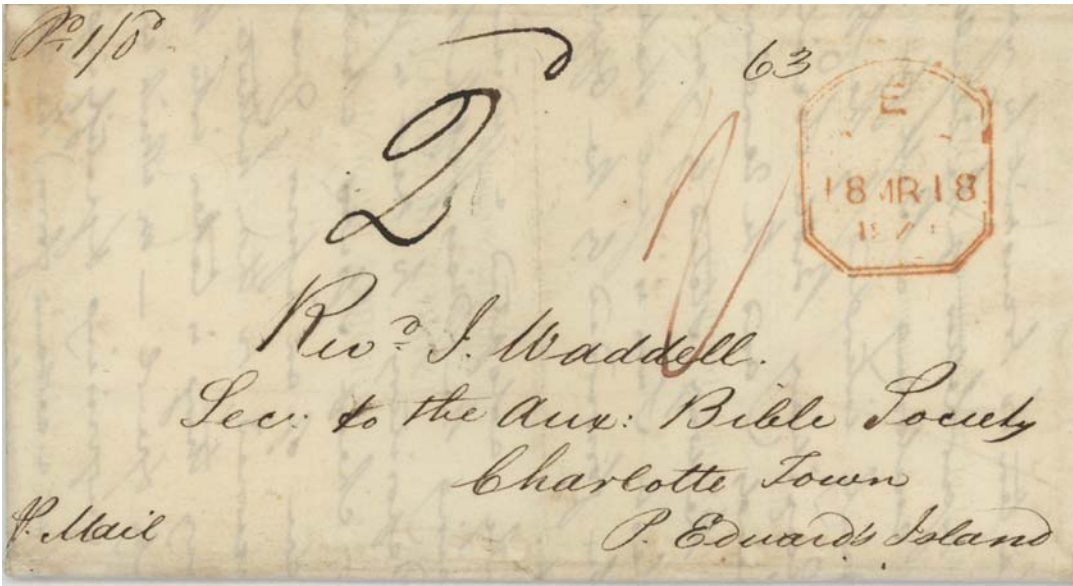 Pd 1/0d
2d
63
1/
E
18 MR 18
Revd J. Waddell.
Secy: to the Aux: Bible Society
Charlotte Town
P. Edward's Island
P. Mail